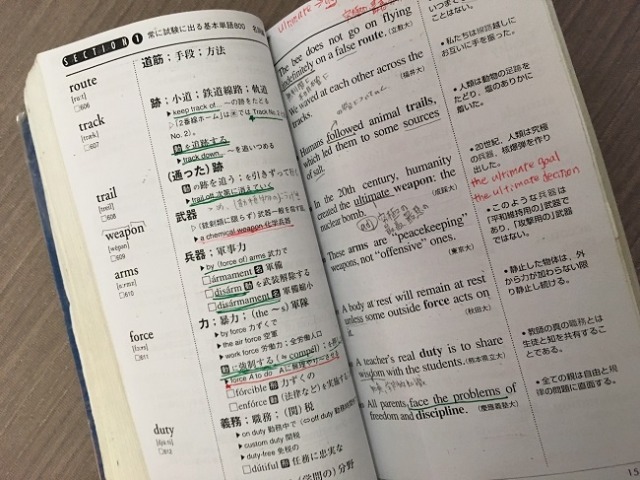 SECTION 1 常に試験に出る基本単語800
route
□606
道筋；手段；方法
track
[træk]
□607
跡；小道；鉄道線路；軌道
▶keep track of... ～の跡をたどる
No. 2)。
動 を追跡する
▶track down... ～を追いつめる
trail
[treil]
□608
(通った)跡
動 の跡を追う；を引きずって
▶trail off 次第に消えていく
weapon
□609
武器
▷(銃剣類に限らず)武器一般を指す。
▶a chemical weapon 化学兵器
arms
□610
兵器；軍事力
▶by (force of) arms 武力で
□ármament 名 軍備
□disárm 動 を武装解除する
□disármament 名 軍備縮小
force
□611
力；暴力；(the ～s) 軍隊
▶by force 力ずくで
▶the air force 空軍
▶work force 労働力；全労働人口
動 に強制する(≒compél)；を
▶force A to do Aに無理やり～させる
□fórcible 形 力ずくの
□enfórce 動 (法律など)を実施す
duty
□612
義務；職務；(関)税
▶on duty 勤務中で (⇔off duty
▶custom duty 関税
▶duty-free 免税の
□dútiful 形 任務に忠実な
(学問の)分野
ultimate
The bee does not go on flying
indefinitely on a false route. (立教大)
We waved at each other across the
tracks. (福井大)
Humans followed animal trails,
which led them to some sources
of salt.
In the 20th century, humanity
created the ultimate weapon: the
nuclear bomb. (成蹊大)
These arms are "peacekeeping"
weapons, not "offensive" ones.
(東京大)
A body at rest will remain at rest
unless some outside force acts on
it. (秋田大)
A teacher's real duty is to share
wisdom with the students. (熊本県立大)
All parents face the problems of
freedom and discipline. (慶應義塾大)
ことはない。
●私たちは線路越しに
お互いに手を振った。
●人類は動物の足跡を
たどり、塩のありかに
着いた。
●20世紀、人類は究極
の兵器、核爆弾を作り
出した。
the ultimate goal
the ultimate decision
●このような兵器は
「平和維持用の」武器で
あり、「攻撃用の」武器
ではない。
●静止した物体は、外
から力が加わらない限
り静止し続ける。
●教師の真の職務とは
生徒と知を共有するこ
とである。
●全ての親は自由と規
律の問題に直面する。
15